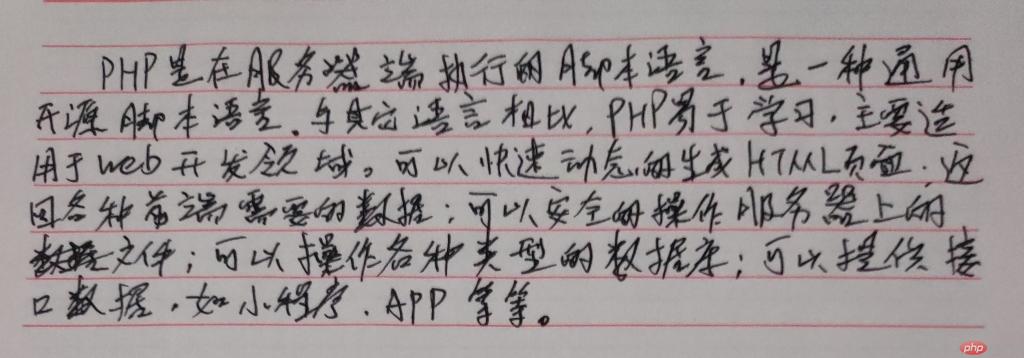 PHP是在服务器端执行的脚本语言，是一种通用
开源脚本语言，与其它语言相比，PHP易于学习，主要适
用于web开发领域。可以快速动态的生成HTML页面，返
回各种前端需要的数据；可以安全的操作服务器上的
数据文件；可以操作各种类型的数据库；可以提供接
口数据，如小程序、APP等等。
php